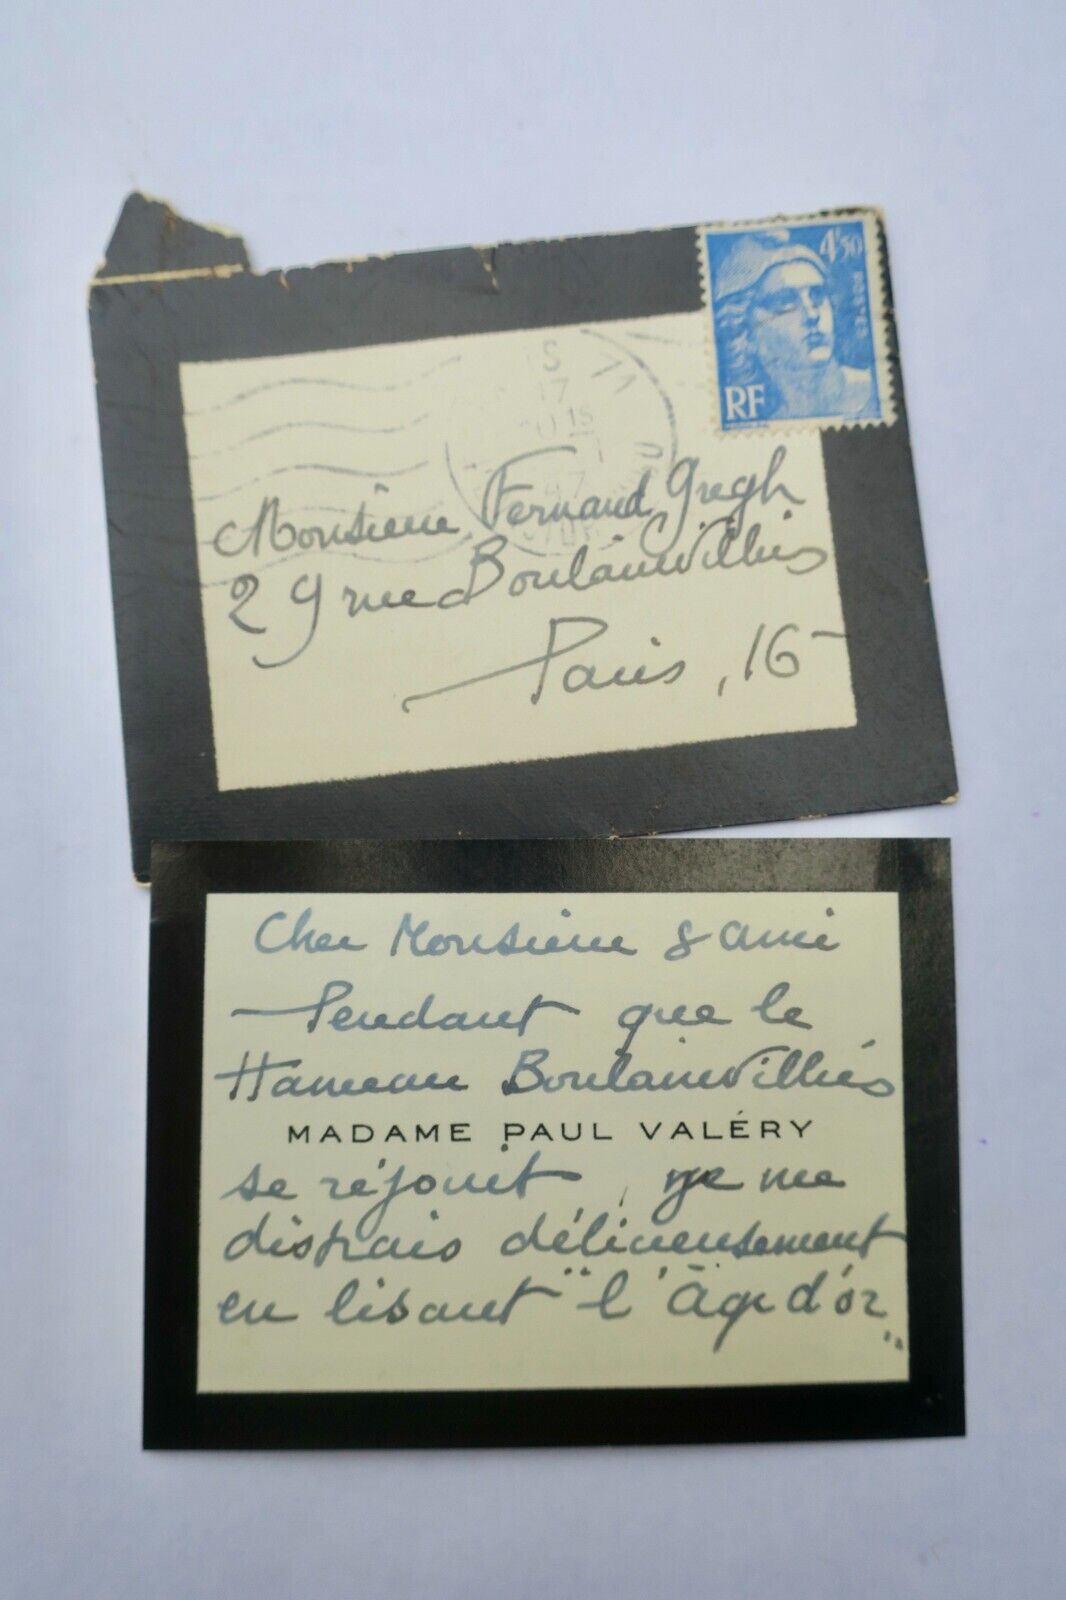 4f50
RF
Monsieur Fernand Gregh
29 rue Boulainvilliers
Paris, 16
Cher Monsieur & ami
Pendant que le
Hameau Boulainvilliers
MADAME PAUL VALÉRY
se réjouit, je me
distrais délicieusement
en lisant "l'Âge d'or"